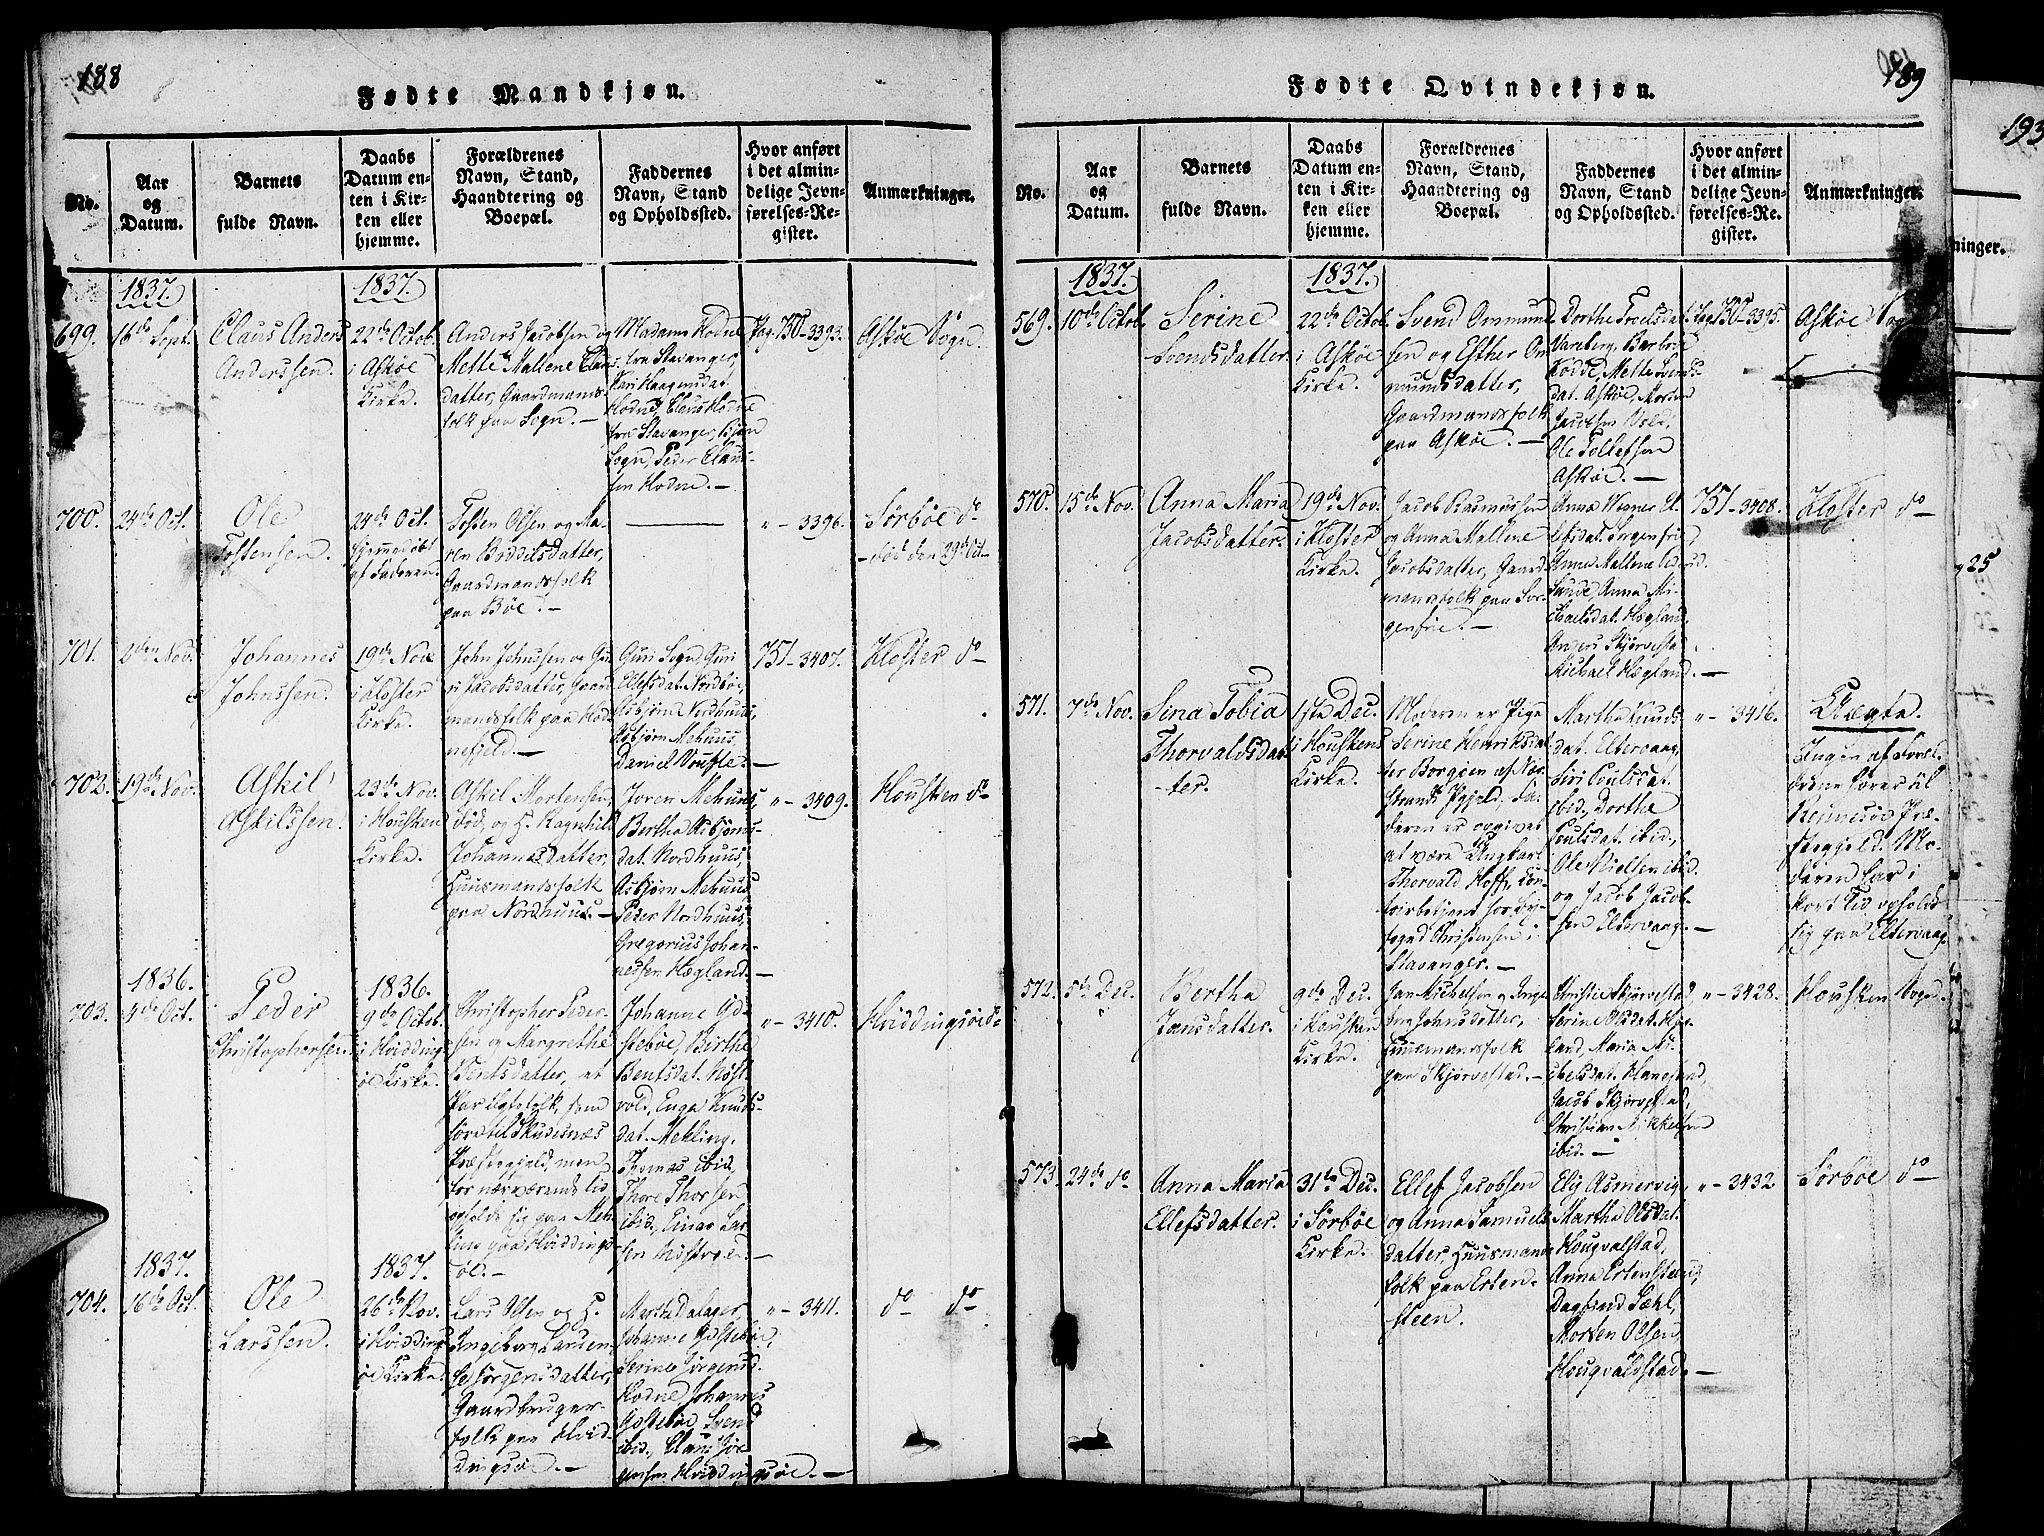 188
Fødte Mandkjøn.
No.
Aar
og
Datum.
Barnets
fulde Navn.
Daabs
Datum en-
ten i Kir-
ken eller
hjemme.
Forældrenes
Navn, Stand,
Haandtering og
Boepæl.
Faddernes
Navn, Stand
og Opholdssted.
Hvor anført
i det almin-
delige Jevn-
førelses-Re-
gister.
Anmærkninger.
1837.
1837.
699.
16de Sept.
Claus Anders
Anderssen.
22de Octob.
i Askøe
Kirke.
Anders Jacobsen og
Mette Mallene Claus-
datter, Gaardmands-
folk paa Sogn. —
Madame Hodne
fra Stavanger,
Kari Haagensdat.
Hodne, Claus Hodne
fra Stavanger, Bjørn
Sogn, Peder Claus-
sen Hodne. —
Pag. 750 - 3393.
Askøe Sogn.
700.
24de Oct.
Ole
Tostensen.
24de Oct.
hjemmedøbt
af Faderen.
Tosten Olsen og Ma-
ren Boddelsdatter,
Gaardmandsfolk
paa Bøe. —
" - 3396.
Sørbøe do
død den 29de Oct.
701.
2den Nov.
Johannes
Johnssen.
19de Nov.
i Kloster
Kirke.
John Johnssen og Gu-
ri Jacobsdatter, Gaard-
mandsfolk paa Hod-
nefjeld. —
Guri Sogn, Guri
Ellefsdat. Nordbøe,
Asbjørn Nordhuus,
Asbjørn Mehuus,
Daniel Voufle. —
751 - 3407.
Kloster do
702.
19de Nov.
Askil
Askilssen.
23de Nov.
i Housken
Kirke.
Askil Mortensen,
død, og H. Ragnhild
Johannesdatter,
Huusmandsfolk
paa Nordhuus. —
Joren Mehuus,
Bertha Asbjørns-
dat. Nordhuus,
Asbjørn Mehuus,
Peder Nordhuus,
Gregorius Johan-
nessen Hægland. —
" - 3409.
Housken do
1836.
1836.
703.
4de Oct.
Peder
Christophersen.
9de Octob.
i Hvidding-
øe Kirke.
Christopher Peder-
sen og Margrethe
Bentsdatter, et
Par Egtefolk, som
hørd til Skudesnæs
Præstegjeld, men
for nærværende Tid
opholde sig paa Meh-
ling paa Hviddings-
øe. —
Johanne Gd-
stebøe, Birthe
Bentsdat. Nøst-
vold, Enga Knuds-
dat. Mehling,
Thomas ibid,
Thore Thorsen
ibid, Einar Lar-
sen Nøstvold. —
" - 3410.
Hviddingsøe do
1837.
1837.
704.
16de Oct.
Ole
Larssen.
26de Nov.
i Hvidding-
øe Kirke.
Lars Olsen og H.
Ingeborg Lauren-
se Jørgensdatter,
Gaardbruger-
folk paa Hvid-
dingsøe. —
Martha Dalager,
Johanne Gdstebøe,
Serine Jørgensd.
Hodne, Johannes
Gdstebøe, Svend
ibid., Claus Jør-
gensen Hviddingsøe. —
" - 3411.
do do
189
Fødte Qvindekjøn.
No.
Aar
og
Datum.
Barnets
fulde Navn.
Daabs
Datum en-
ten i Kir-
ken eller
hjemme.
Forældrenes
Navn, Stand,
Haandtering og
Boepæl.
Faddernes
Navn, Stand
og Opholdsted.
Hvor anført
i det almin-
delige Jevn-
førelses-Re-
gister.
Anmærkninger.
1837.
1837.
569.
10de Octob.
Serine
Svendsdatter.
22de Octob.
i Askøe
Kirke.
Svend Ommund-
sen og Esther Om-
mundsdatter,
Gaardmandsfolk
paa Askøe. —
Dorthe Troelsdat.
Vareberg, Barbroe
Hodne, Mette Svends-
dat. Askøe, Morten
Jacobsen
Ole Tollefsen
Askøe. —
Pag. 750 - 3395.
Askøe Sogn
570.
15de Nov.
Anna Maria
Jacobsdatter.
19de Nov.
i Kloster
Kirke.
Jacob Rasmussen
og Anna Mallene
Jacobsdatter, Gaard-
mandsfolk paa Sor-
genfrie. —
Anna Verner El-
lefsdat. Sorgenfri,
Anna Mallene
Sande, Anna Mi-
chaelsdat. Hægland,
Anders Skjørvestad,
Michael Hægland. —
751 - 3408.
Kloster do
571.
7de Nov.
Sina Tobia
Thorvaldsdat-
ter.
1ste Dec.
i Housken
Kirke.
Moderen er Pige
Serine Henriksdat-
ter Borgøen af Nær-
strands Pgjeld, Fa-
deren er opgivet
at være Ungkarl
Thorvald Hoff, Con-
toirbetjent hos By-
fogd Christensen i
Stavanger. —
Martha Knuds-
dat. Eltervaag,
Siri Poulsdat.
ibid, Dorthe
Poulsdat. ibid,
Ole Nielsen ibid
og Jacob Jacob-
sen Eltervaag. —
" - 3416.
Uægte.
Ingen af Foræl-
drene hører til
Rennesøe Præ-
stegjeld. Mo-
deren har i
kort Tid opholdt
sig paa Eltervaag.
572.
5te Dec.
Bertha
Jansdatter.
9de Dec.
i Housken
Kirke.
Jan Michelsen og Inge-
borg Johnsdatter,
Huusmandsfolk
paa Skjørvestad. —
Christie Skjørvestad,
Serine Olsdat. Hæg-
land, Maria Mi-
chelsdat. Hanestad,
Jacob Skjørvestad,
Christian Mikkelsen
ibid. —
" - 3428.
Housken Sogn.
573.
24de do
Anna Maria
Ellefsdatter.
31te Dec.
i Sørbøe
Kirke.
Ellef Jacobsen
og Anna Samuels-
datter, Huusmands-
folk paa Erten-
steen.
Elij Asmervig,
Martha Olsdat.
Hougvalstad,
Anna Ertensteen,
Dagfind Sæhl,
Morten Olsen
Hougvaldstad. —
" - 3432
Sørbøe do
193
ninger.
25